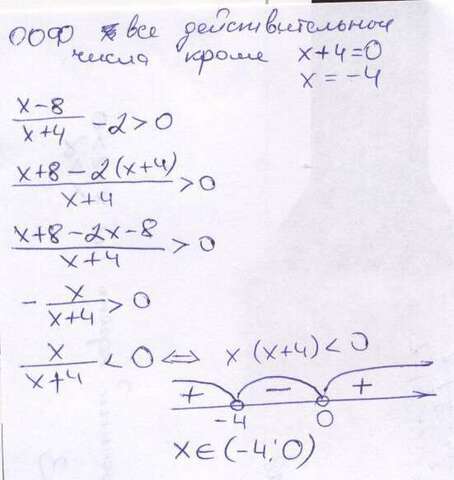 ООФ все действительные
числа кроме x+4=0
x=-4
x-8/x+4 -2>0
x+8-2(x+4)/x+4 >0
x+8-2x-8/x+4 >0
- x/x+4 >0
x/x+4 <0 ⇔ x(x+4)<0
+ - +
-4 0
x∈(-4;0)